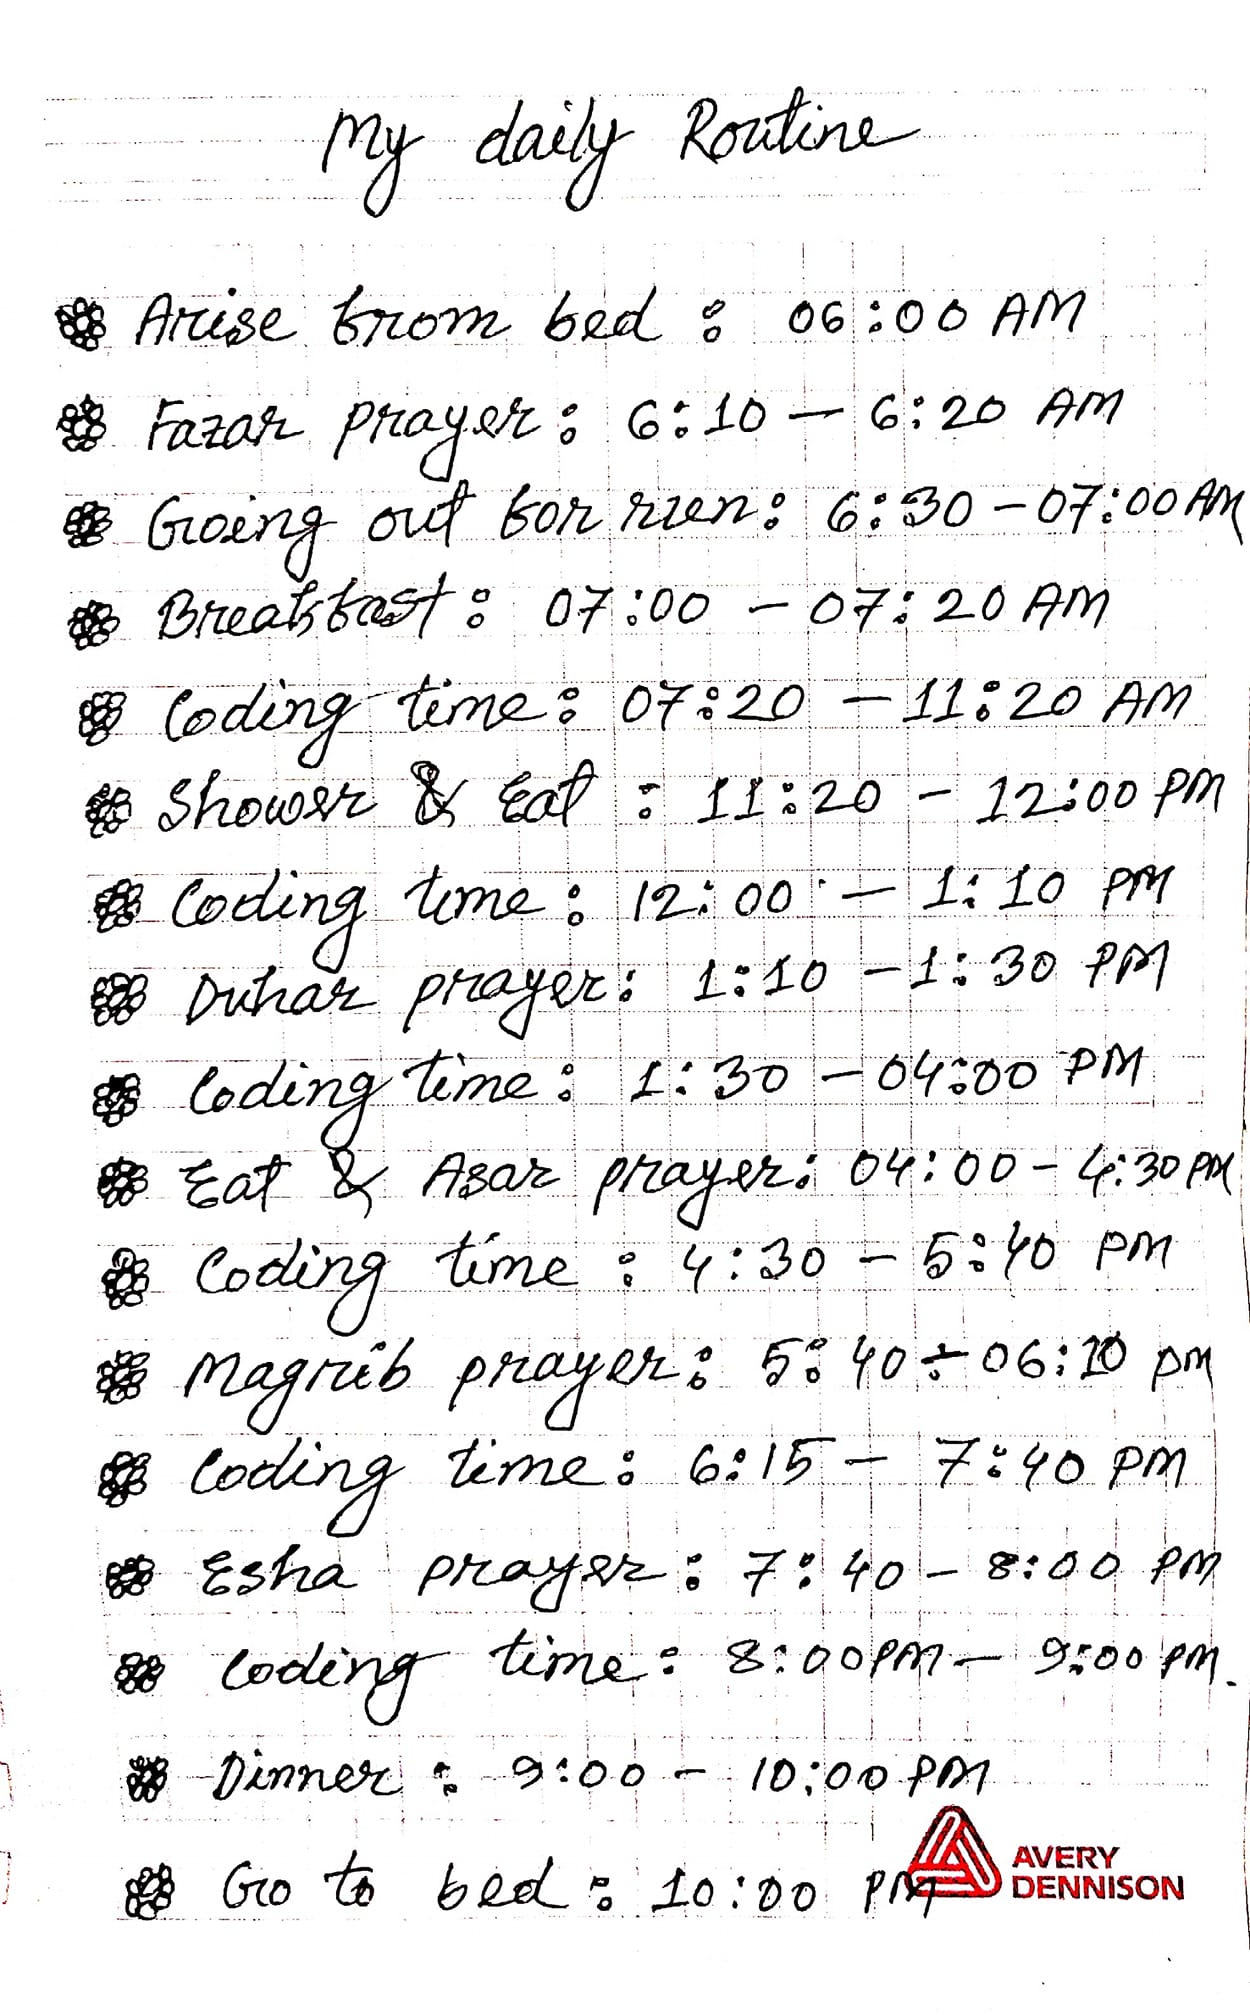 My daily Routine
Arise from bed : 06:00 AM
Fazar prayer: 6:10 — 6:20 AM
Going out for run: 6:30 - 07:00 AM
Breakfast: 07:00 - 07:20 AM
Coding time: 07:20 - 11:20 AM
Shower & Eat : 11:20 - 12:00 PM
Coding time: 12:00 — 1:10 PM
Duhar prayer: 1:10 - 1:30 PM
Coding time: 1:30 - 04:00 PM
Eat & Asar prayer: 04:00 - 4:30 PM
Coding time : 4:30 - 5:40 PM
Magrib prayer: 5:40 - 06:10 pm
Coding time: 6:15 - 7:40 PM
Esha prayer: 7:40 - 8:00 PM
Coding time: 8:00PM — 9:00 PM.
Dinner : 9:00 - 10:00 PM
Go to bed : 10:00 PM
AVERY
DENNISON